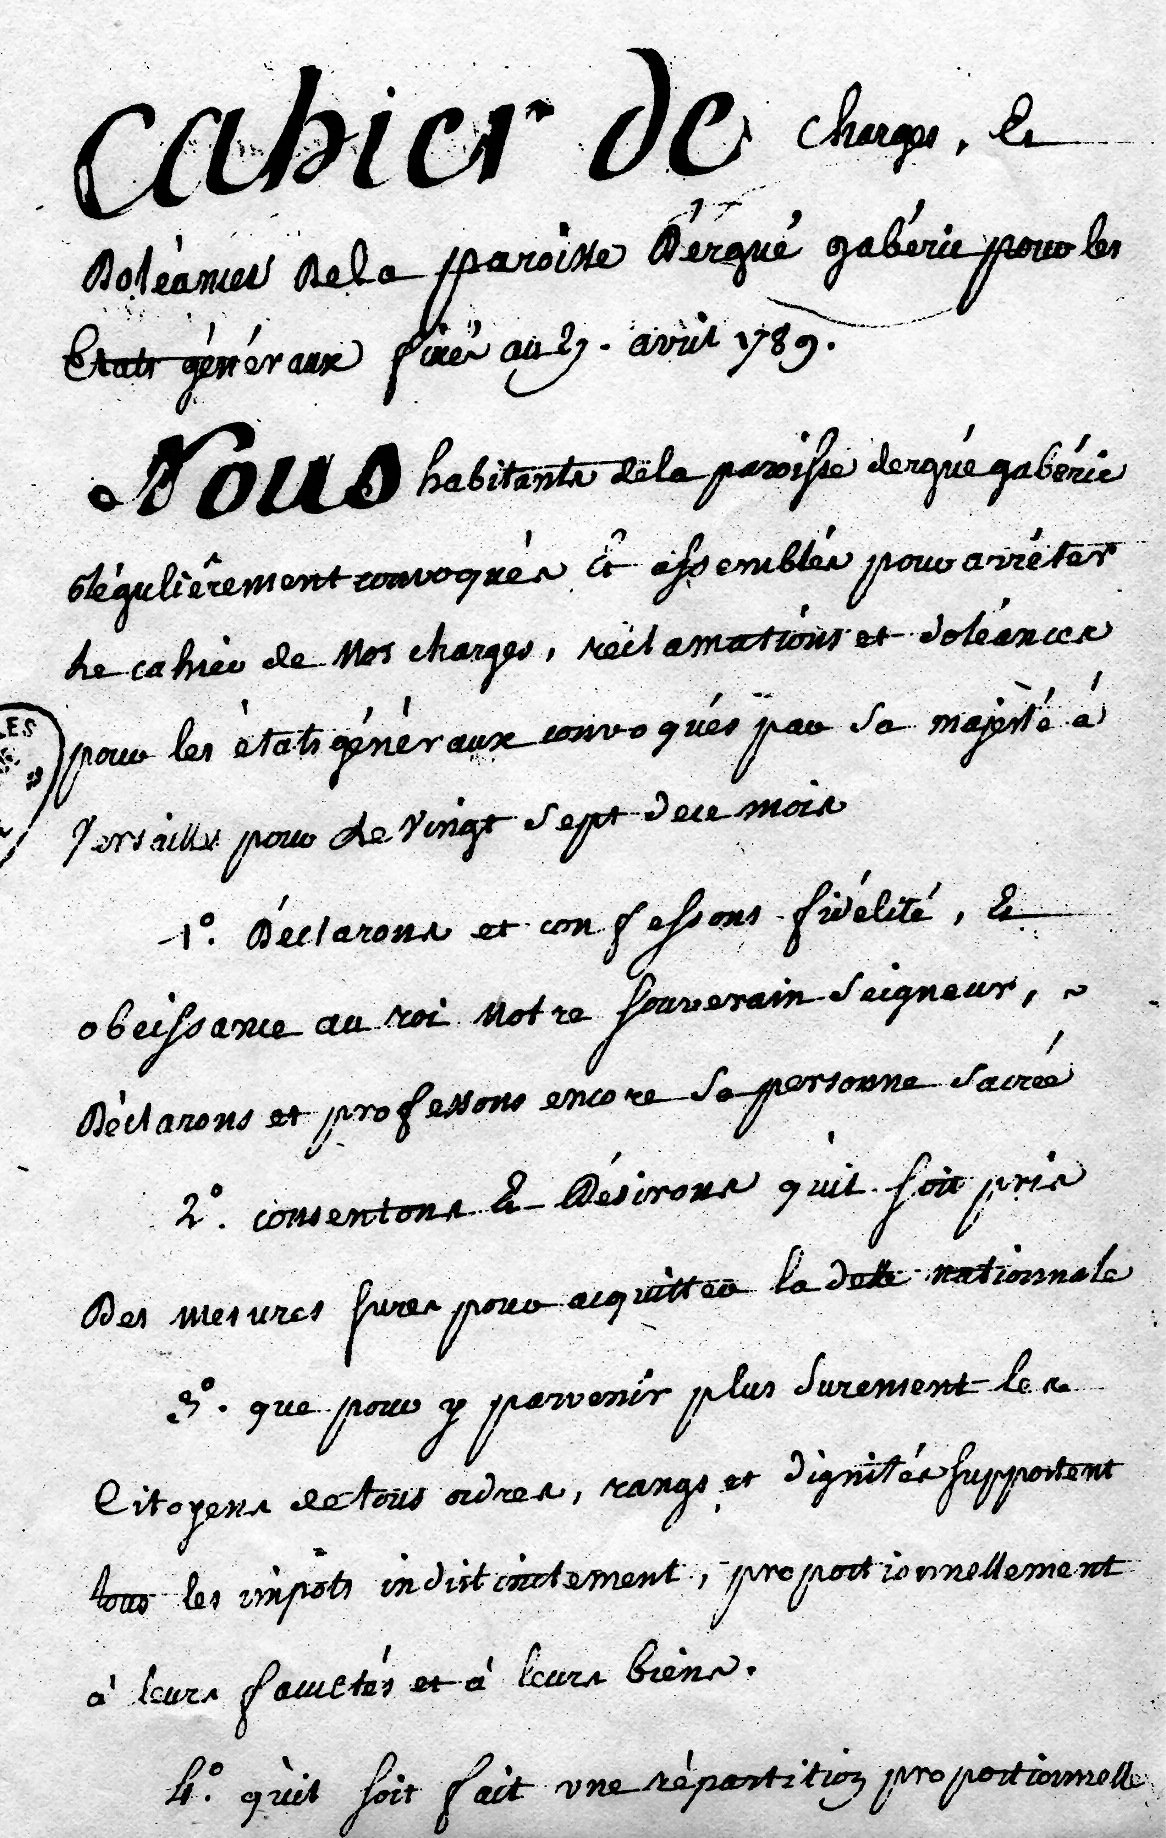 Cahier de charges, &
Doléances de la paroisse d'érgué gabéric pour les
Etats généraux fixés au 27. avril 1789.
Nous habitants de la paroisse dergué gabéric
régulièrement convoqués et assemblés pour arrêter
Le cahier de Nos charges, réclamations et doléances
pour les états généraux convoqués par sa majesté à
Versailles pour le Vingt sept de ce mois
1°. Déclarons et confessons fidélité, &
obeissance au roi Notre souverain seigneur,
Déclarons et professons encore sa personne sacrée
2°. consentons & Désirons qu'il soit pris
Des mesures sures pour acquitter la dette nationnale
3°. que pour y parvenir plus surement les
Citoyens de tous ordres, rangs et dignités supportent
tous les impôts indistinctement, proportionnellement
à leurs facultés et à leurs biens.
4°. qu'il soit fait une répartition proportionnelle
LES